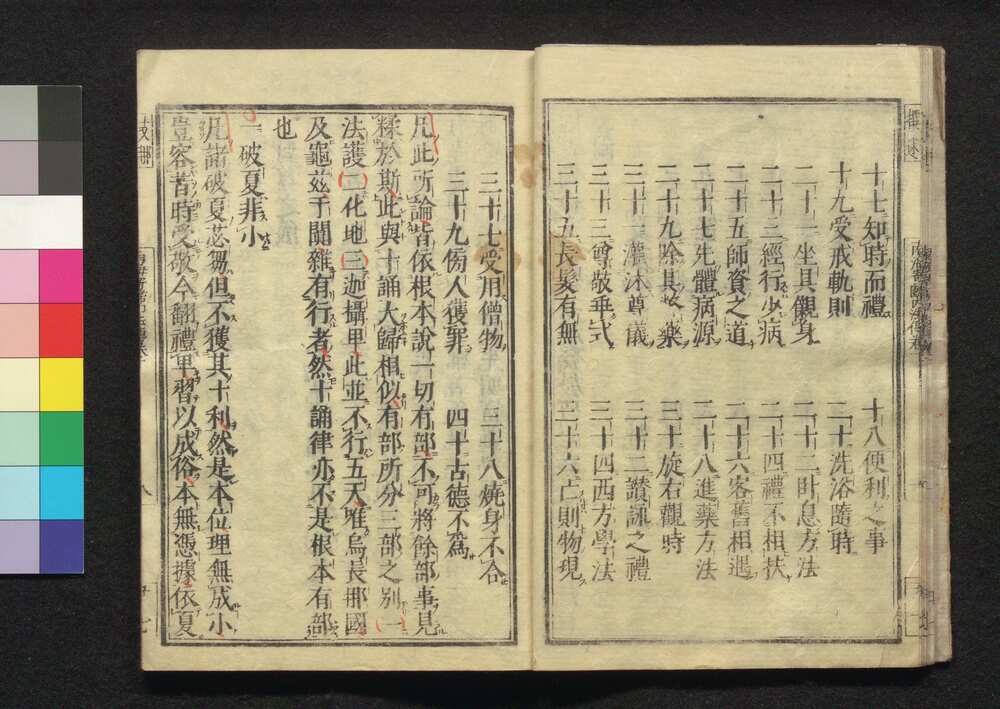 十七知時而禮 十八便利之事
十九受戒軌則 二十洗浴隨時
二十一坐具儭身 二十二臥息方法
二十三經行少病 二十四禮不相扶
二十五師資之道 二十六客舊相遇
二十七先體病源 二十八進藥方法
二十九除其弊藥 三十旋右觀時
三十一灌沐尊儀 三十二讚詠之禮
三十三尊敬乖式 三十四西方學法
三十五長髮有無 三十六亡則物現
三十七受用僧物 三十八燒身不合
三十九傍人獲罪 四十古德不為
凡此所論皆依根本說一切有部不可將餘部事見
糅於斯此與十誦大歸相似有部所分三部之別一
法護二化地三迦攝卑此並不行五天唯烏長那國
及龜茲于闐雜有行者然十誦律亦不是根本有部
也
一破夏非小
凡諸破夏苾芻但不獲其十利然是本位理無成小
豈容昔時受敬今翻禮卑習以成俗本無憑據依夏